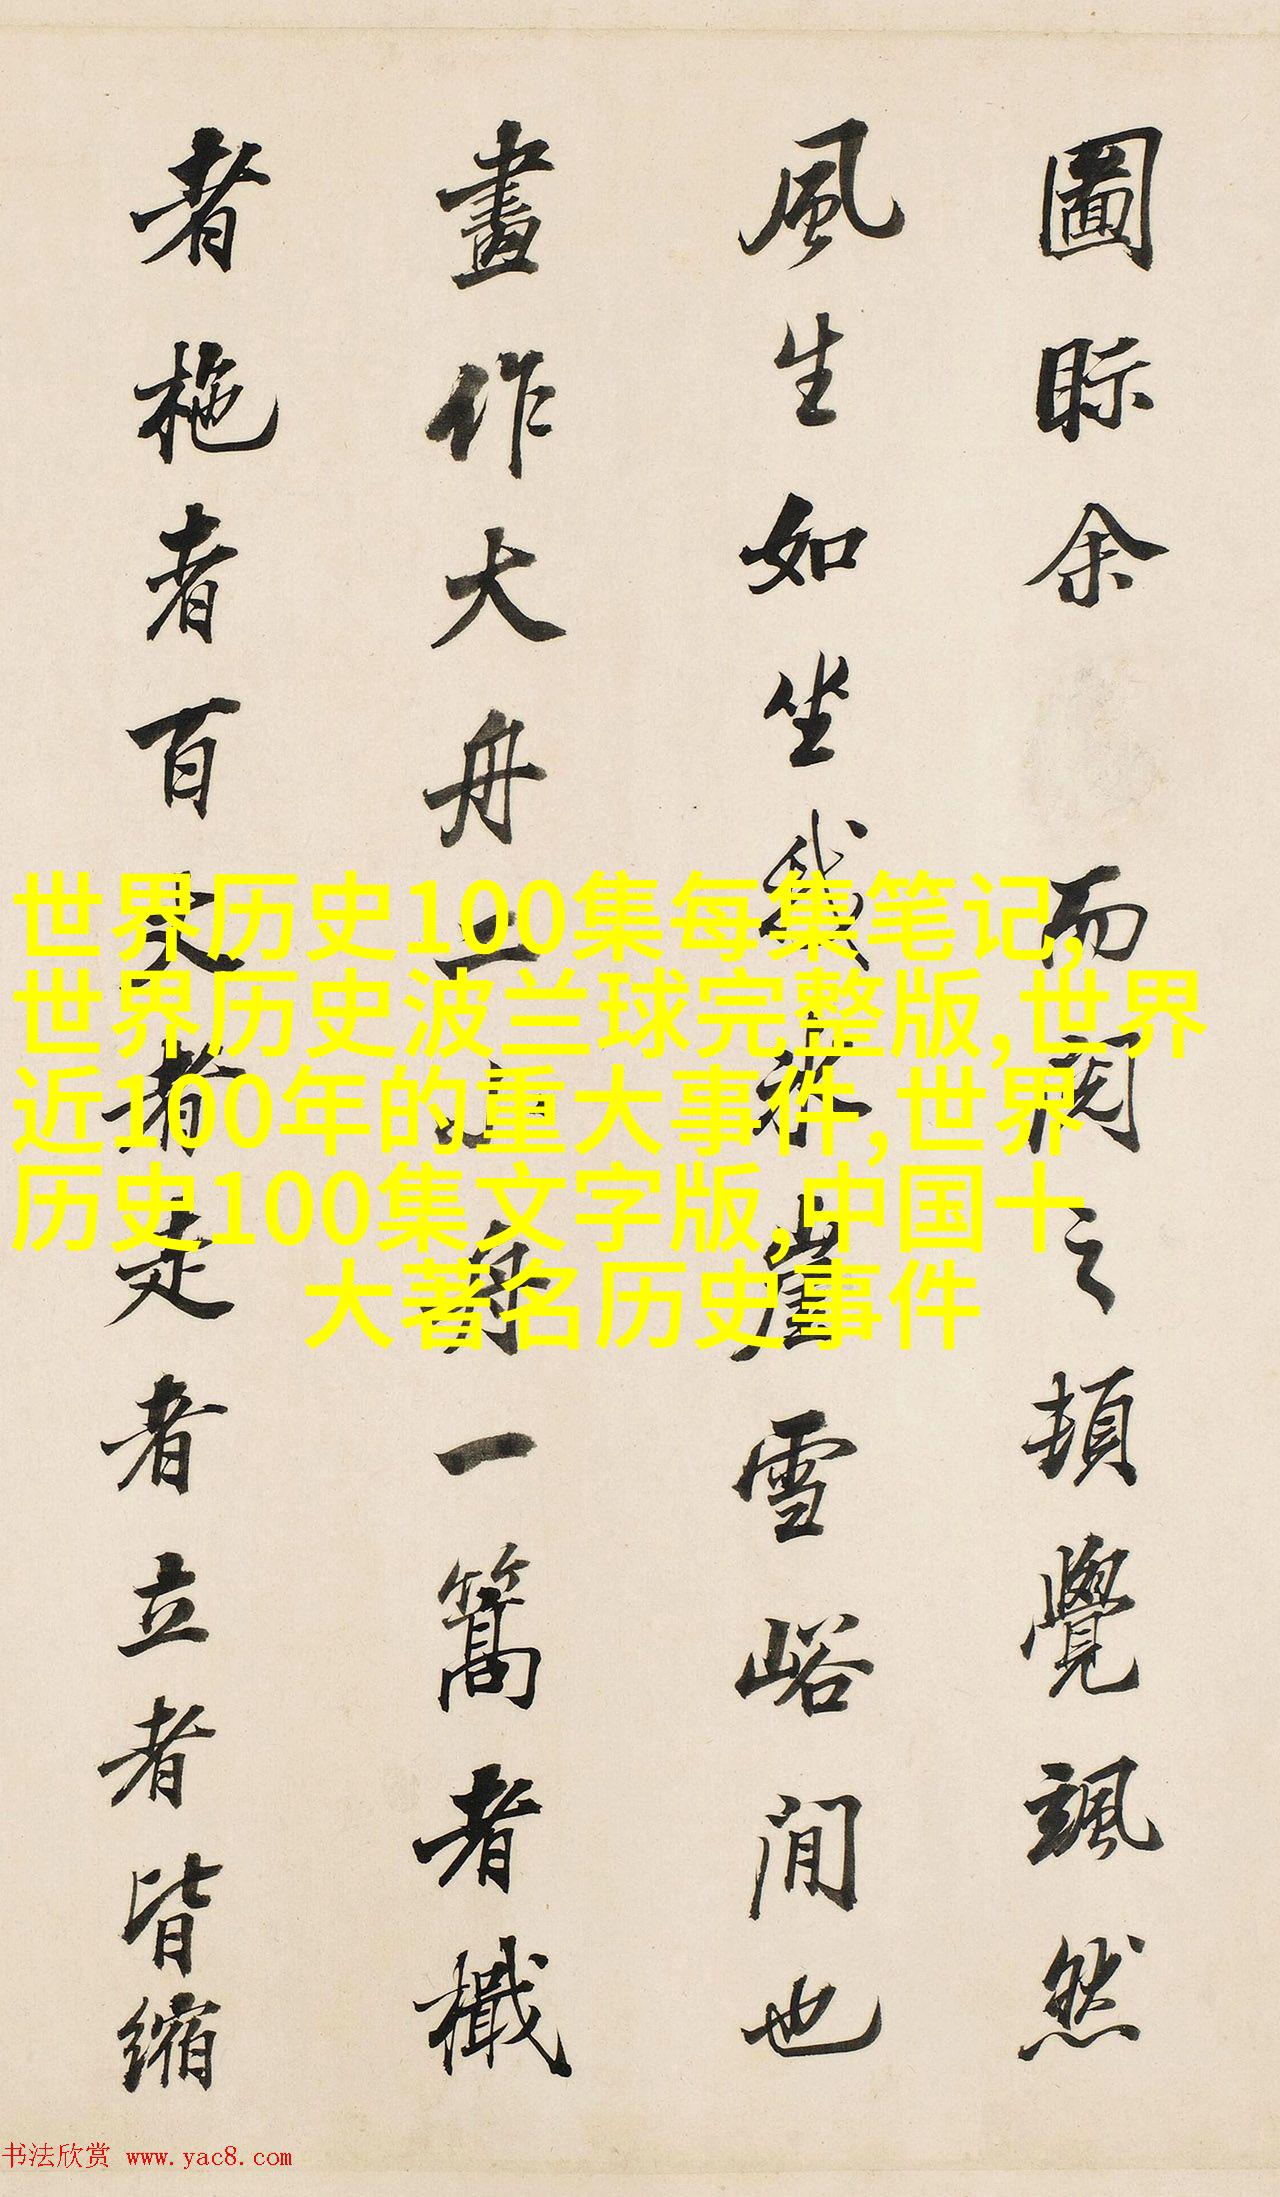 圖眎余而閱之頓覺颯然
風生如坐我冰崖雪峪間也
畫作大舟二小舟一篙者檝
者柂者百丈者走者立者皆縮
世界历史100集每集笔记,
世界历史波兰球完整版,世界
近100年的重大事件,世界
历史100集文字版,中国十
大著名历史事件
书法欣赏 www.yac8.com